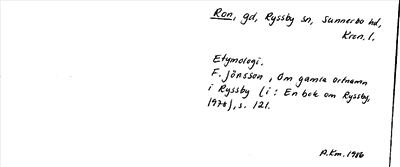 Ron, gd, Ryssby sn, Sunnerbo hd,
Kron. l.
Etymologi.
F. Jönsson, Om gamla ortnamn
i Ryssby (i: En bok om Ryssby,
1970), s. 121.
A.Km. 1986